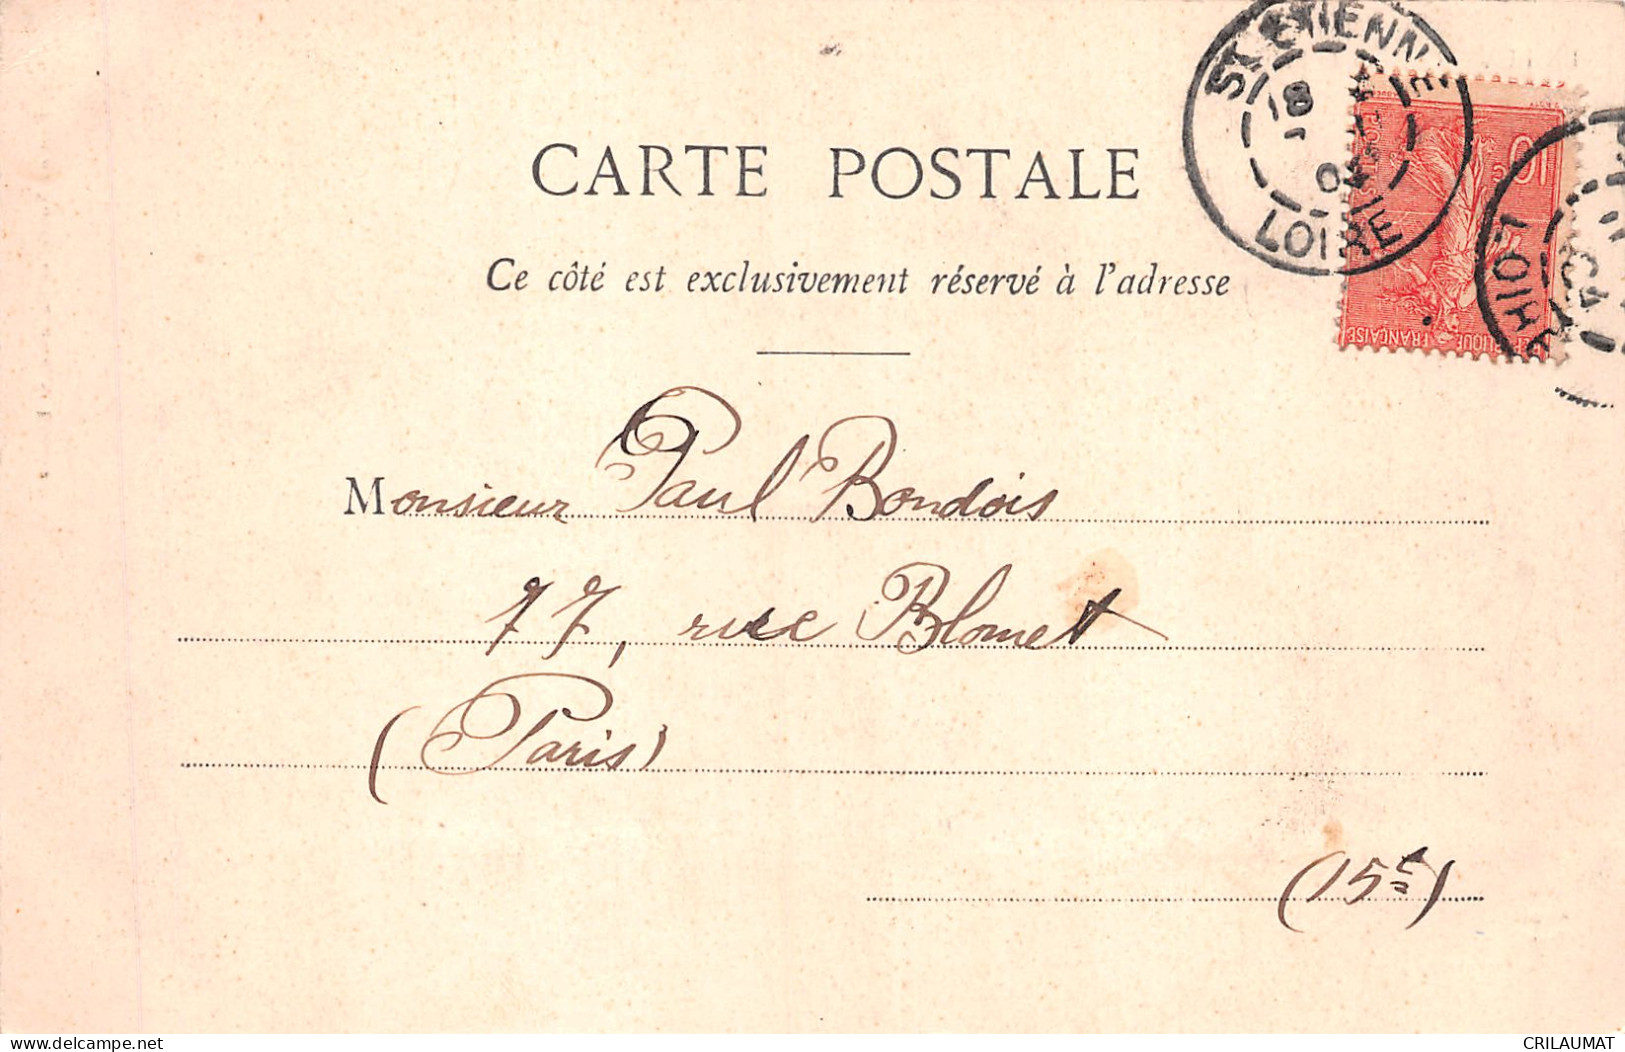 CARTE POSTALE
Ce côté est exclusivement réservé à l'adresse
Monsieur Paul Bondois
77, rue Blomet
(Paris)
(15e)
ST ETIENNE
18
LOIRE
10
RÉPUBLIQUE FRANÇAISE
www.delcampe.net
CRILAUMAT